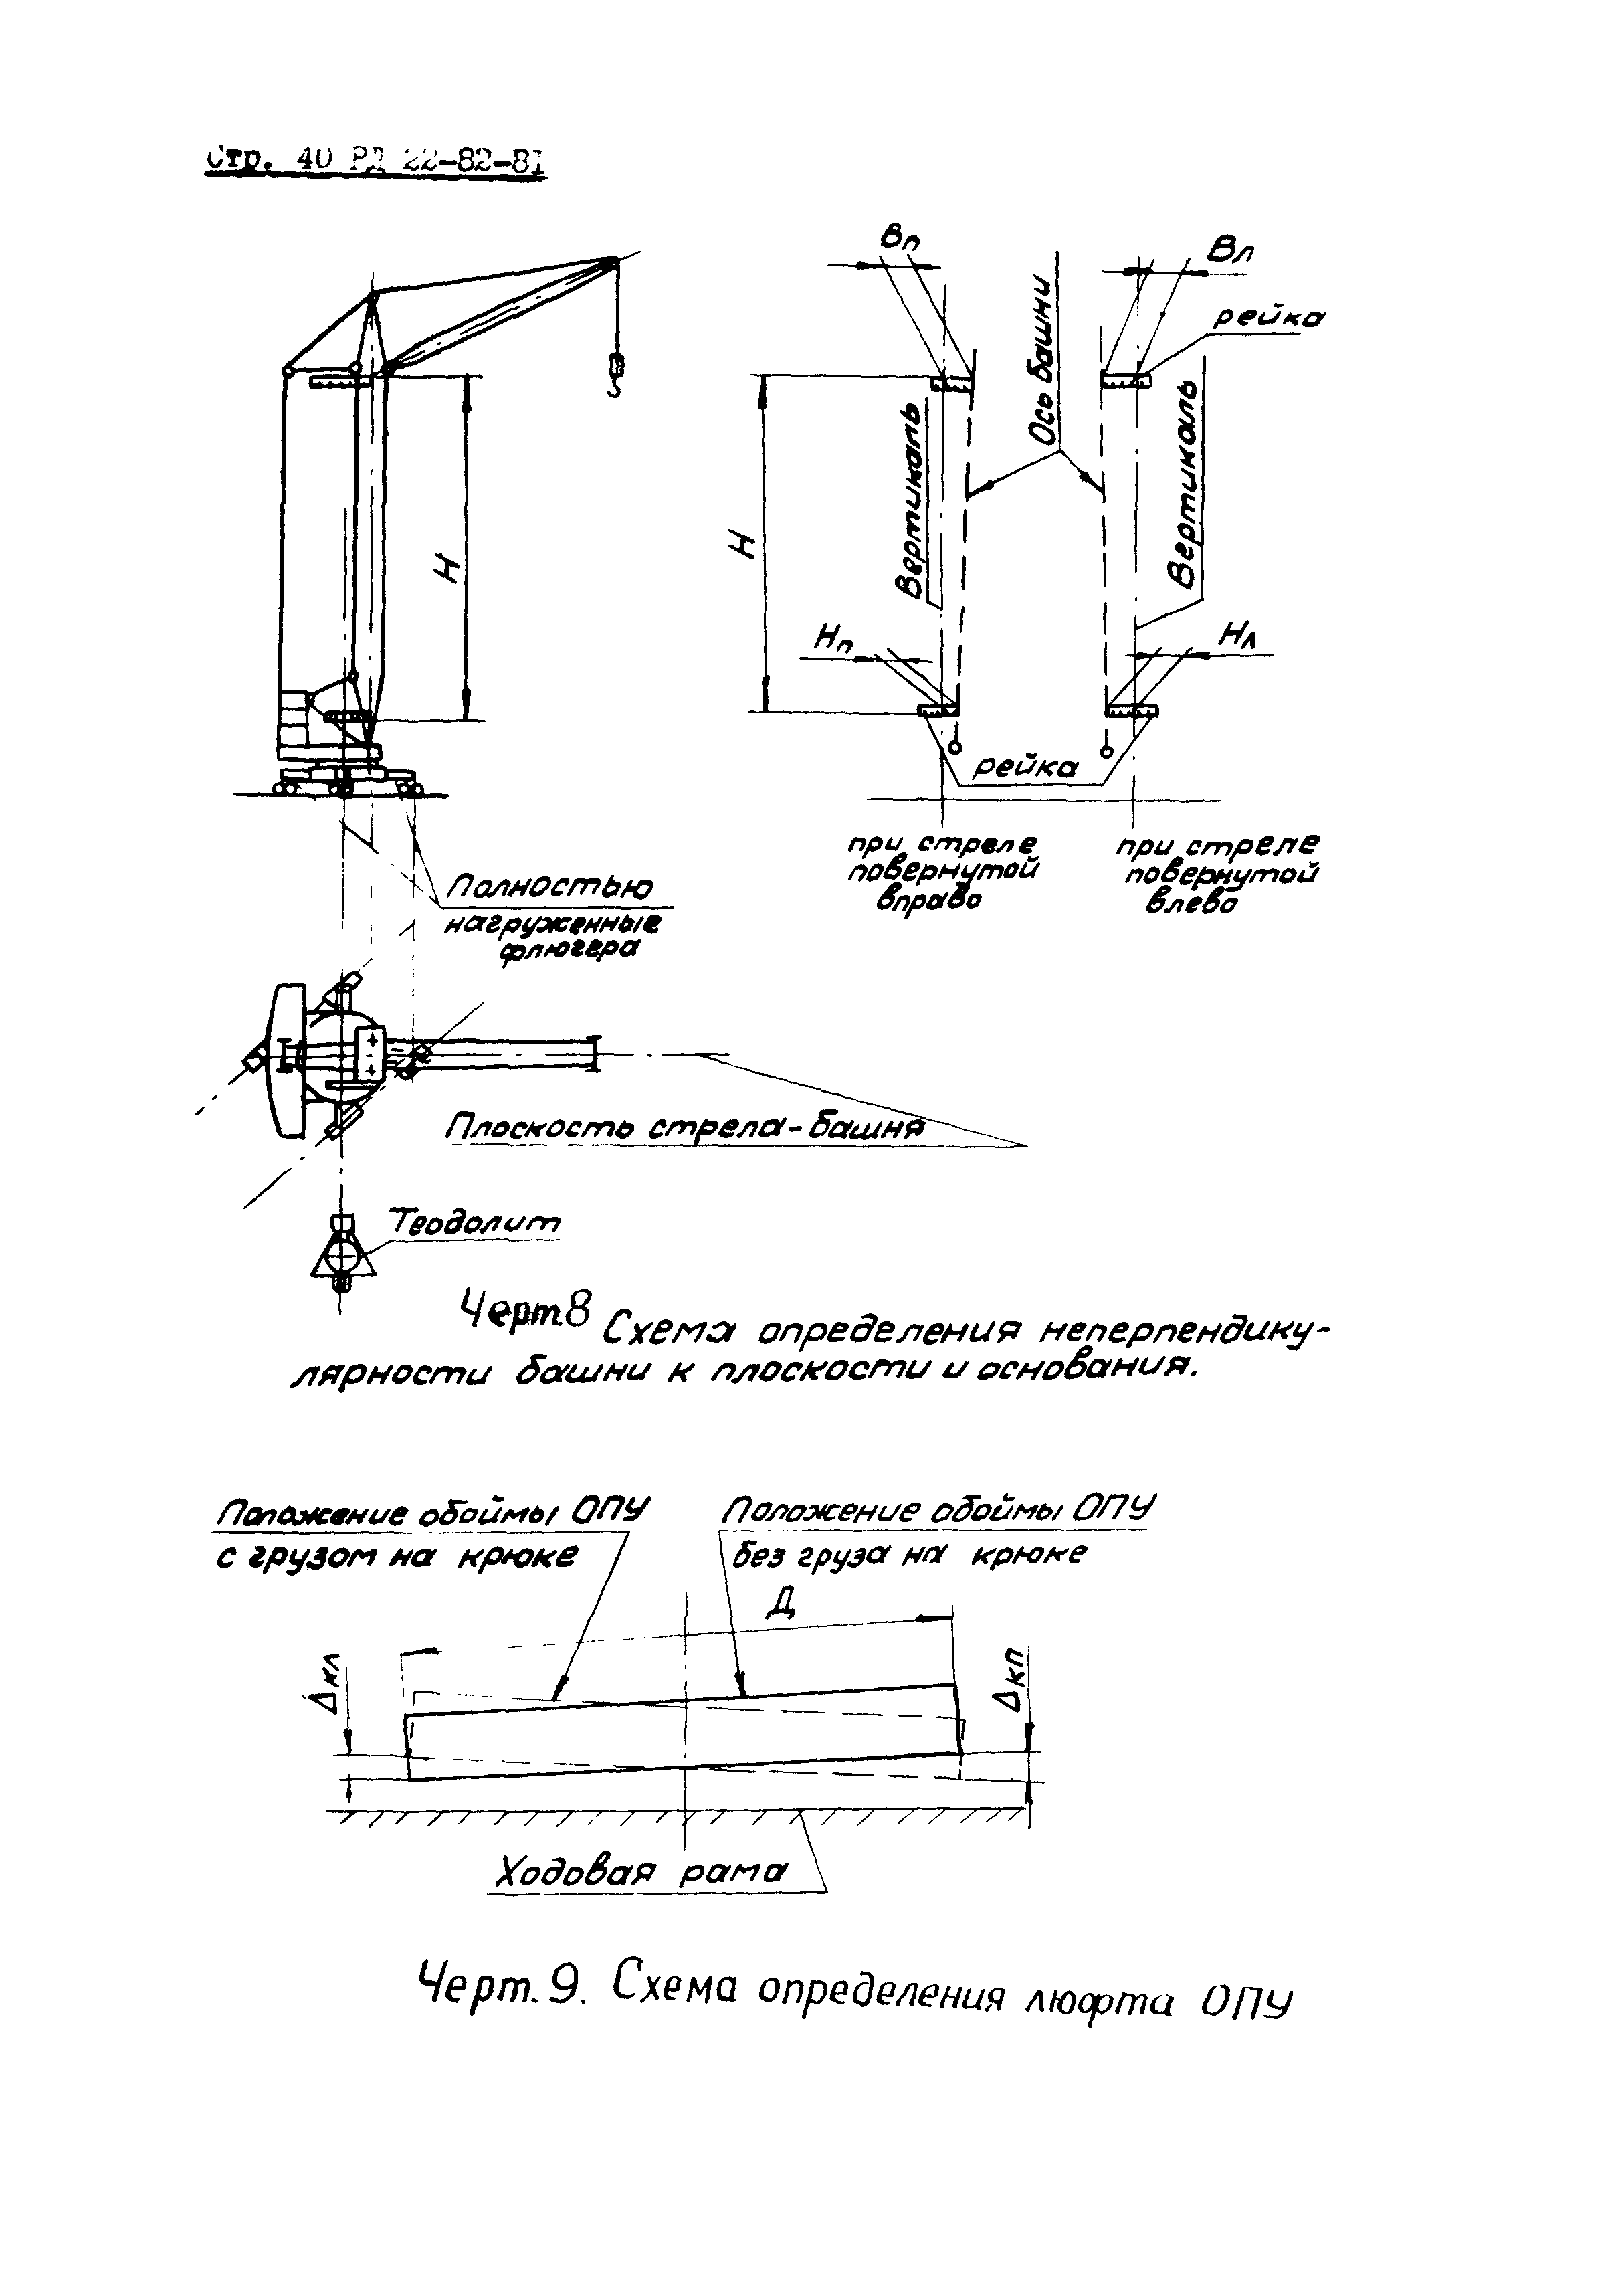 Стр. 40 РД 22-82-81
Вп
Вл
рейка
Ось башни
Вертикаль
Вертикаль
Н
Н
Нп
Нл
рейка
при стреле
повернутой
вправо
при стреле
повернутой
влево
Полностью
нагруженные
флюгера
Плоскость стрела-башня
Теодолит
Черт.8 Схема определения неперпендику-
лярности башни к плоскости и основания.
Положение обоймы ОПУ
с грузом на крюке
Положение обоймы ОПУ
без груза на крюке
Д
Δкл
Δкп
Ходовая рама
Черт. 9. Схема определения люфта ОПУ